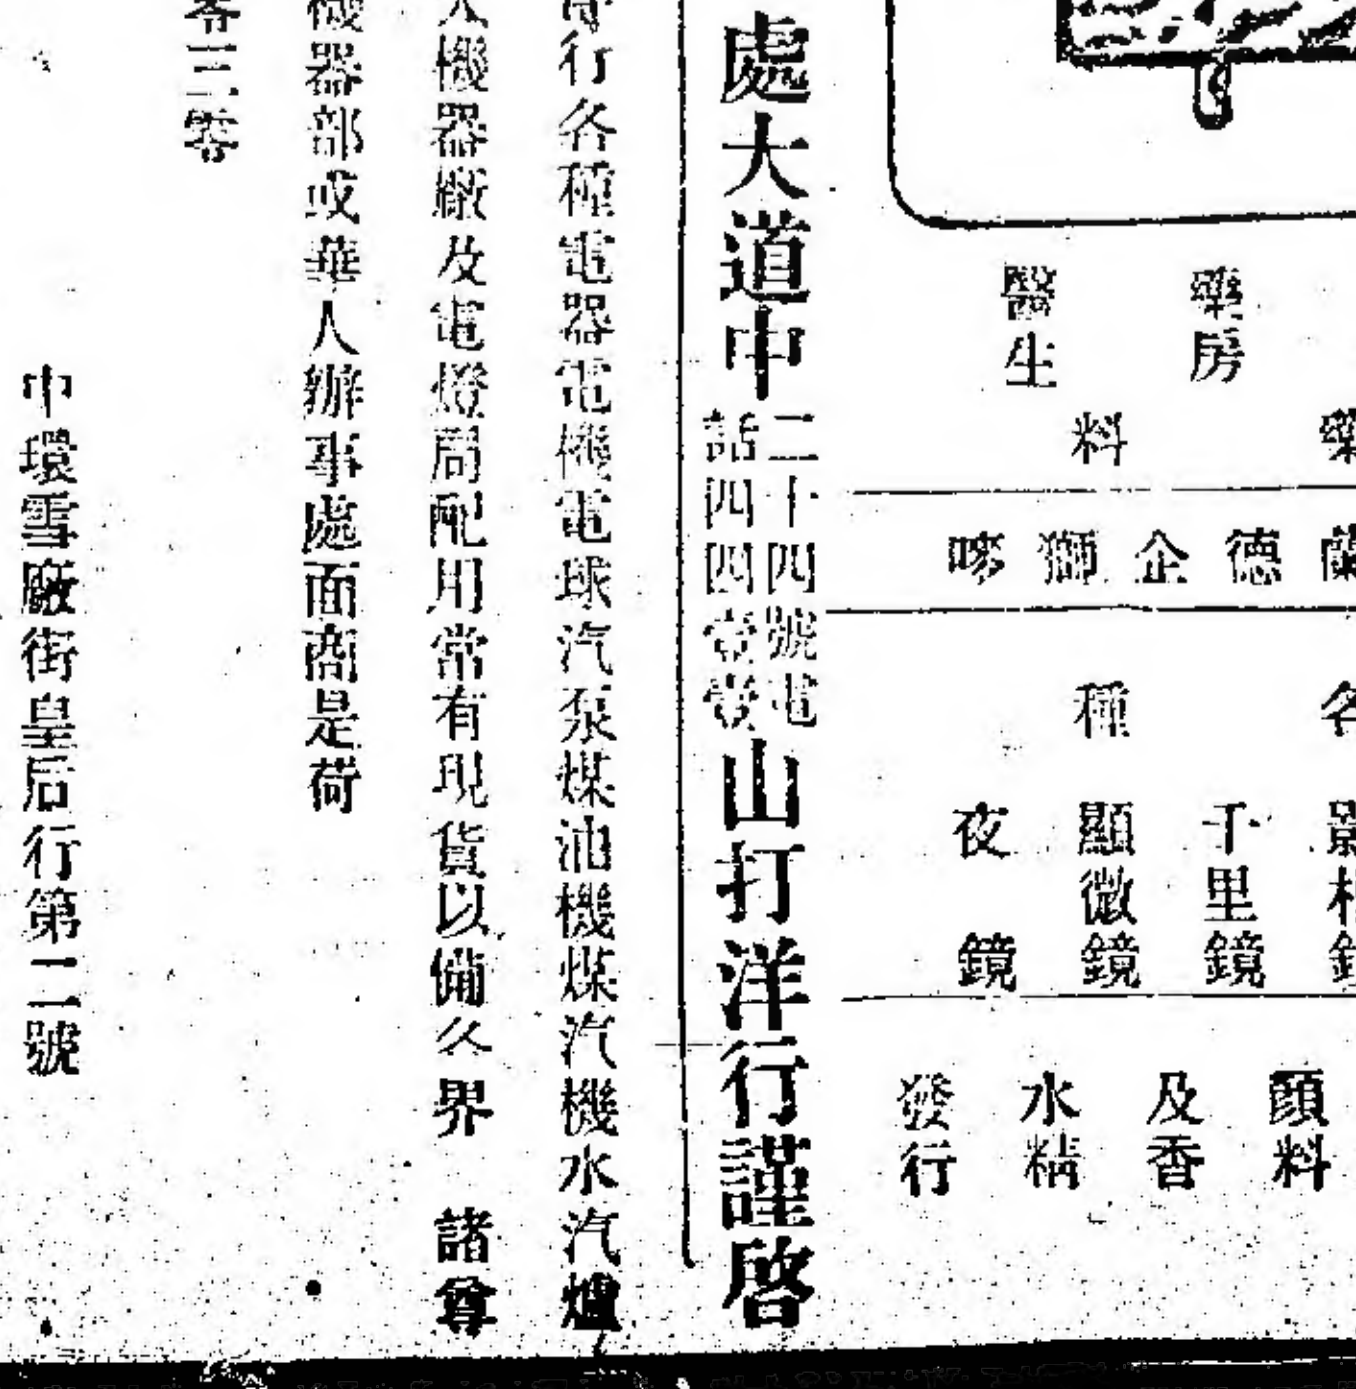 藥房
醫生
藥料
蘭德企獅嗲
各種
影相鏡
千里鏡
顯微鏡
夜鏡
顏料
及香
水精
發行
處大道中二十四號電話四四四壹壹山打洋行謹啓
行各種電器電機電球汽泵煤油機煤汽機水汽爐
機器廠及電燈局配用常有現貨以備各界 諸尊
機器部或華人辦事處面商是荷
零三零
中環雪廠街皇后行第二號